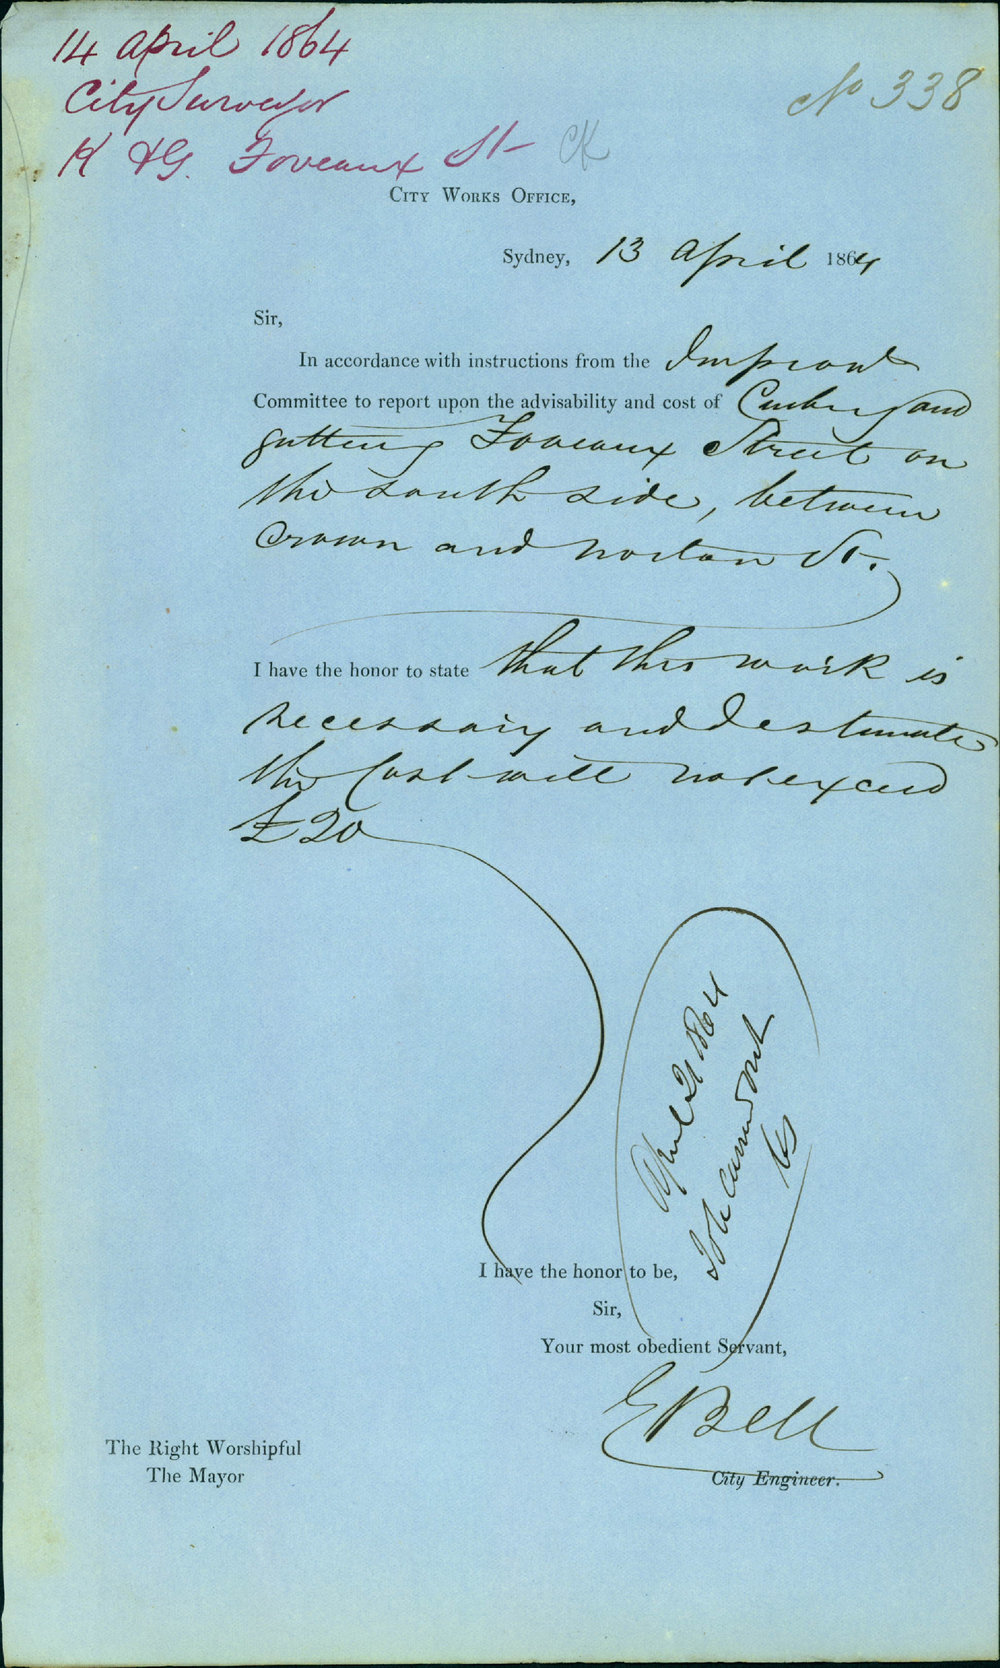 14 April 1864
City Surveyor
No 338
K & G. Foveaux St CK
CITY WORKS OFFICE,
Sydney, 13 April 1864
Sir,
In accordance with instructions from the Improvmt
Committee to report upon the advisability and cost of Curbing and
guttering Foveaux Street on
the south side, between
Crown and Norton St.
I have the honor to state that this work is
necessary and I estimate
the Cost will not exceed
£20
April 21 1864
I have the honor to be,
Sir,
Your most obedient Servant,
E Bell
City Engineer.
The Right Worshipful
The Mayor